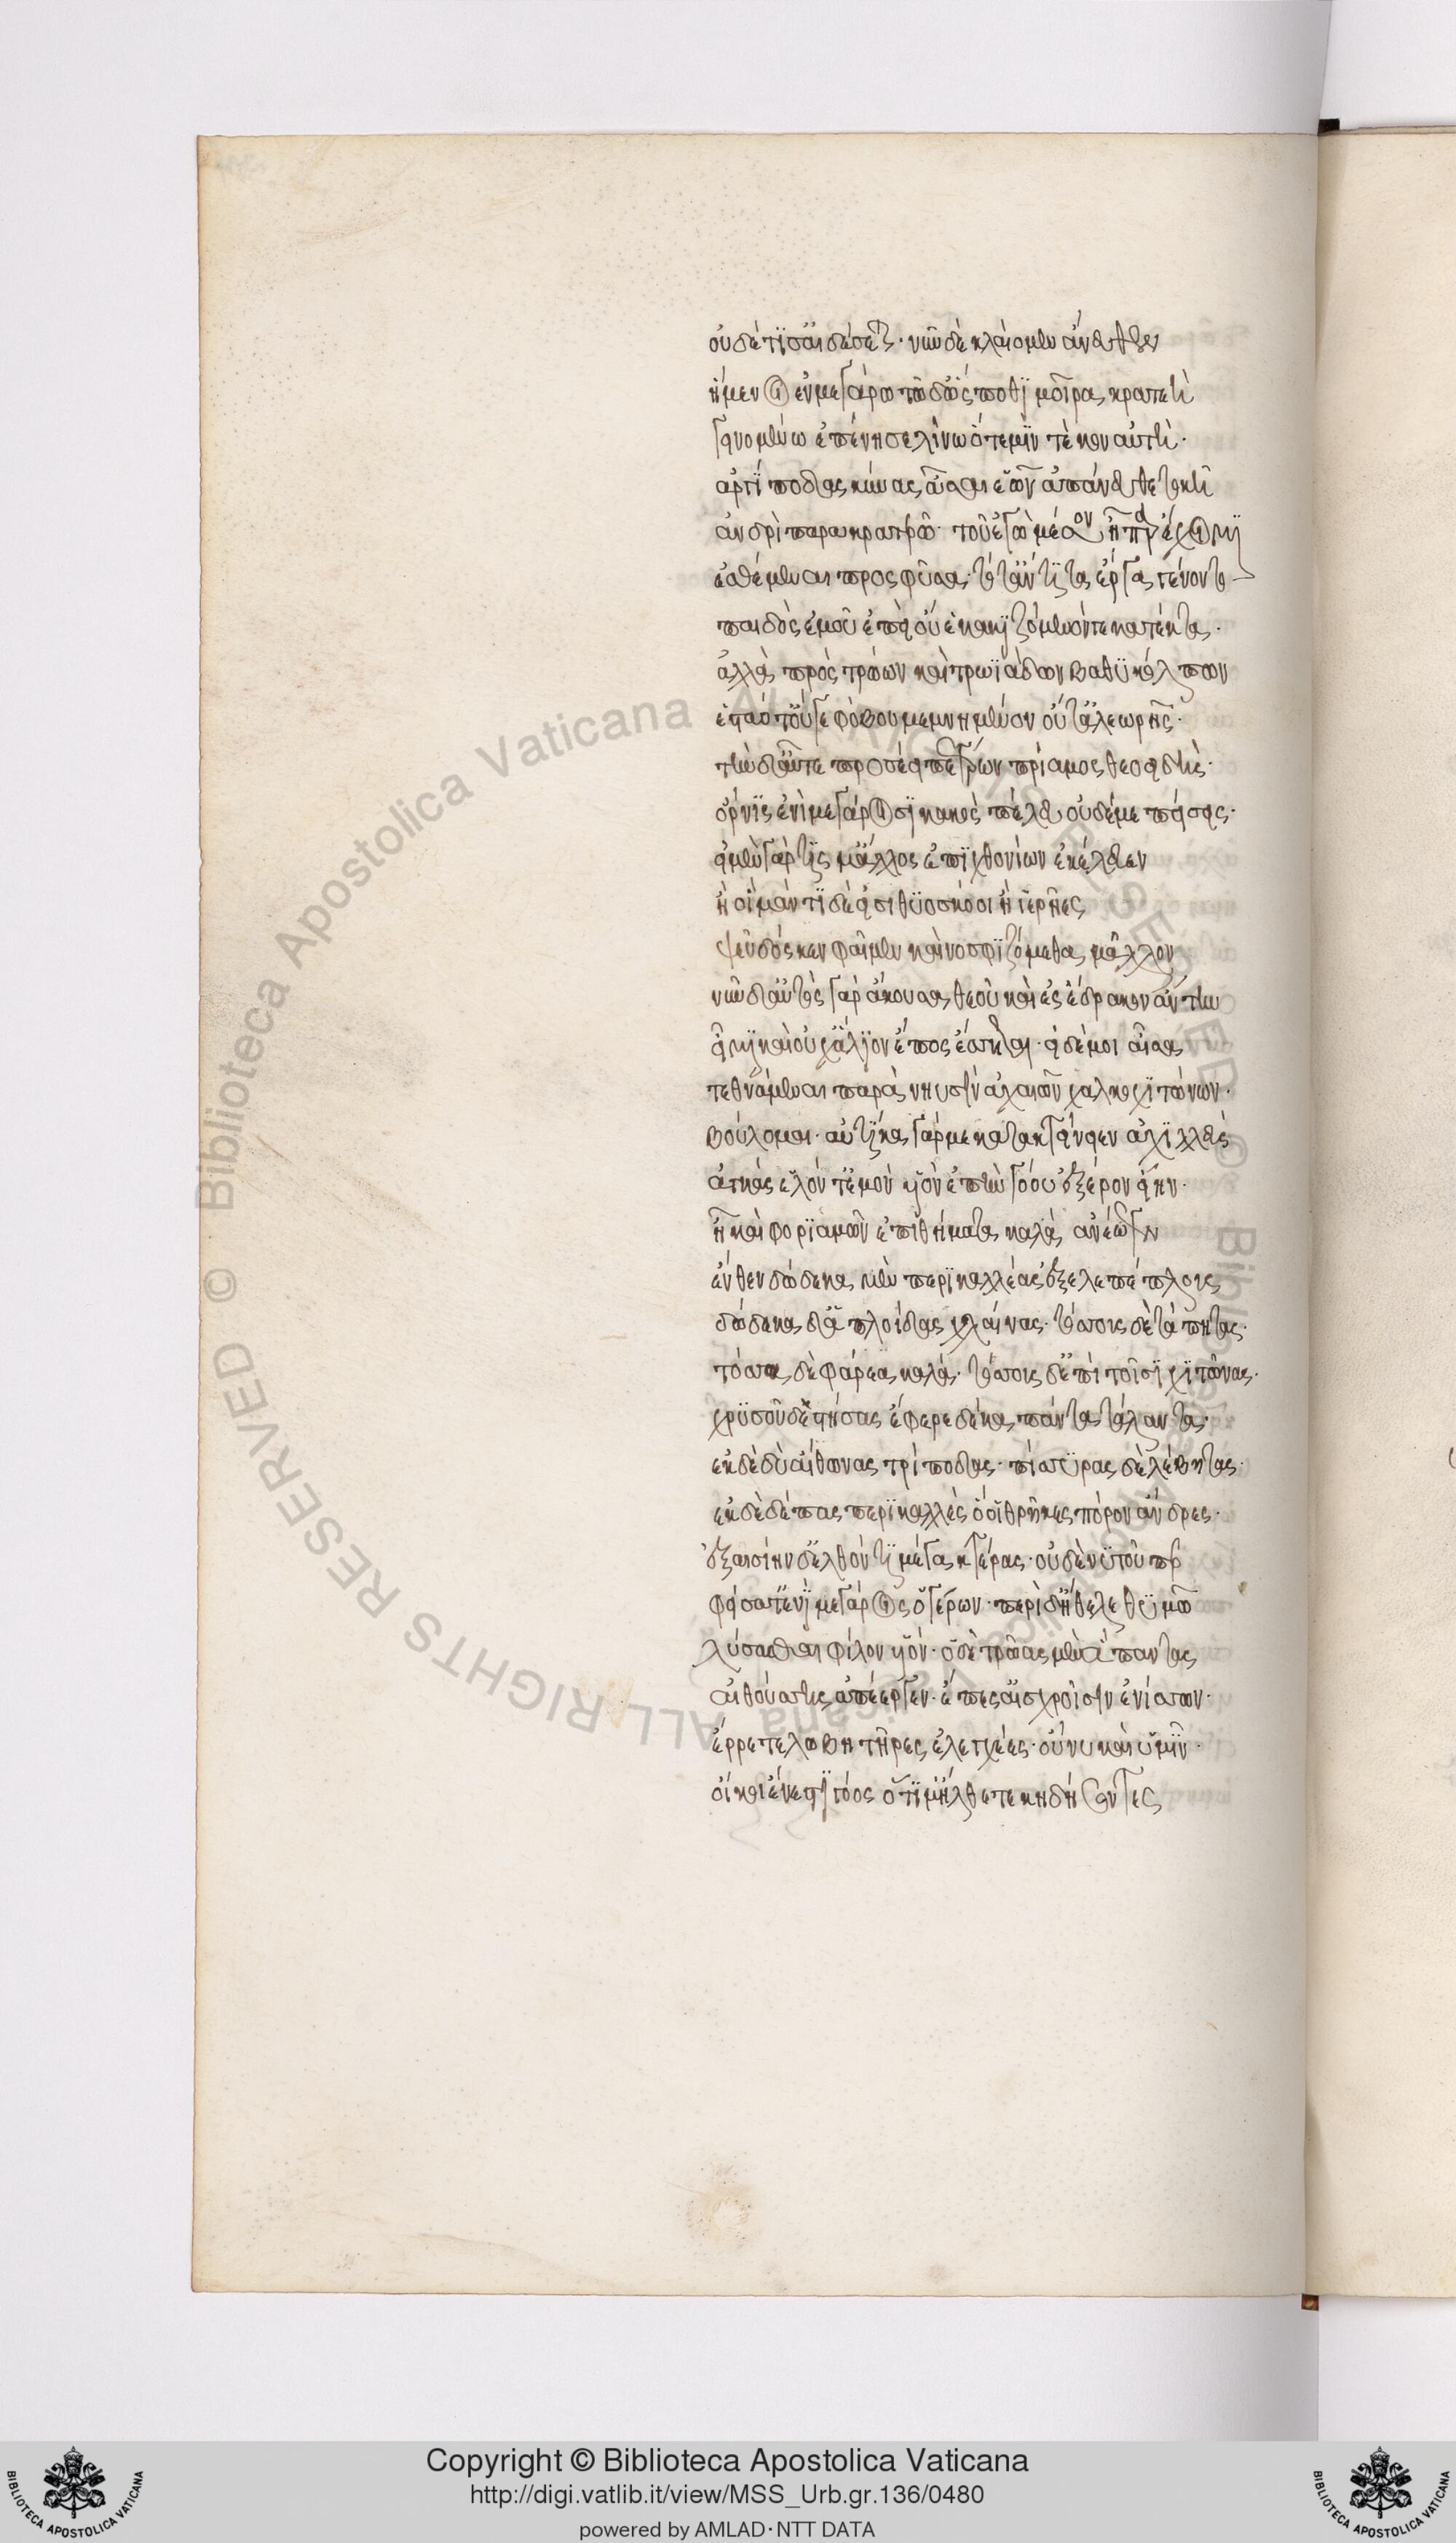 οὐδέ τί σ' αἰδέσεται· νῦν δὲ κλαίωμεν ἄνευθεν
ἥμενοι ἐν μεγάρω· τῶ δ' ὥς ποθι μοῖρα κραταιὴ
γεινομένω ἐπένησε λίνω ὅτε μιν τέκον αὐτὴ·
ἀργίποδας κύνας ἆσαι ἑῶν ἀπάνευθε τοκήων
ἀνδρὶ παρα κρατερῶ· τοῦ ἐγὼ μέσον ἧπαρ ἔχοιμι
ἐσθέμεναι προσφῦσα· τότ' ἄντιτα ἔργα γένοντο
παιδὸς ἐμοῦ ἐπεὶ οὔ ἑ κακιζόμενόν γε κατέκτα·
ἀλλὰ πρὸς τρώων καὶ τρωϊάδων βαθυκόλπων
ἑσταότ' οὔτε φόβου μεμνημένον οὔτ' ἀλεωρῆς·
τὴν δ' αὖτε προσέειπε γέρων πρίαμος θεοειδὴς·
ὄρνις ἐνὶ μεγάροισι κακὸς πέλευ οὐδέ με πείσεις·
εἰ μὲν γάρ τίς μ' ἄλλος ἐπιχθονίων ἐκέλευεν
ἢ οἳ μάντιές εἰσι θυοσκόοι ἢ ἱερῆες
ψεῦδός κεν φαῖμεν καὶ νοσφιζοίμεθα μᾶλλον
νῦν δ' αὐτὸς γὰρ ἄκουσα θεοῦ καὶ ἐσέδρακον ἄντην
εἶμι καὶ οὐχ ἅλιον ἔπος ἔσσεται· εἰ δέ μοι αἶσα
τεθνάμεναι παρὰ νηυσὶν ἀχαιῶν χαλκοχιτώνων·
βούλομαι· αὐτίκα γάρ με κατακτείνειεν ἀχιλλεὺς
ἀγκὰς ἑλόντ' ἐμὸν υἱὸν ἐπὴν γόου ἐξ ἔρον εἵην·
ἦ καὶ φωριαμῶν ἐπιθήματα καλὰ ἀνέωγεν
ἔνθεν δώδεκα μὲν περικαλλέας ἔξελε πέπλους
δώδεκα δ' ἁπλοΐδας χλαίνας· τόσσους δὲ τάπητας·
τόσσα δὲ φάρεα καλά· τόσσους δ' ἐπὶ τοῖσι χιτῶνας·
χρυσοῦ δὲ στήσας ἔφερε δέκα πάντα τάλαντα·
ἐκ δὲ δύ' αἴθωνας τρίποδας· πίσυρας δὲ λέβητας·
ἐκ δὲ δέπας περικαλλὲς ὅ οἱ θρῆκες πόρον ἄνδρες·
ἐξεσίην δ' ἐλθόντι μέγα κτέρας· οὐδέ νυ τοῦ περ
φείσατ' ἐνὶ μεγάροις ὁ γέρων· περὶ δ' ἤθελε θυμῶ
λύσασθαι φίλον υἱόν· ὁ δὲ τρῶας μὲν ἅπαντας
αἰθούσης ἀπέεργεν· ἔπεσσ' αἰσχροῖσιν ἐνίσσων·
ἔρρετε λωβητῆρες ἐλεγχέες· οὔ νυ καὶ ὑμῖν·
οἴκοι ἔνεστι γόος ὅτι μ' ἤλθετε κηδήσοντες